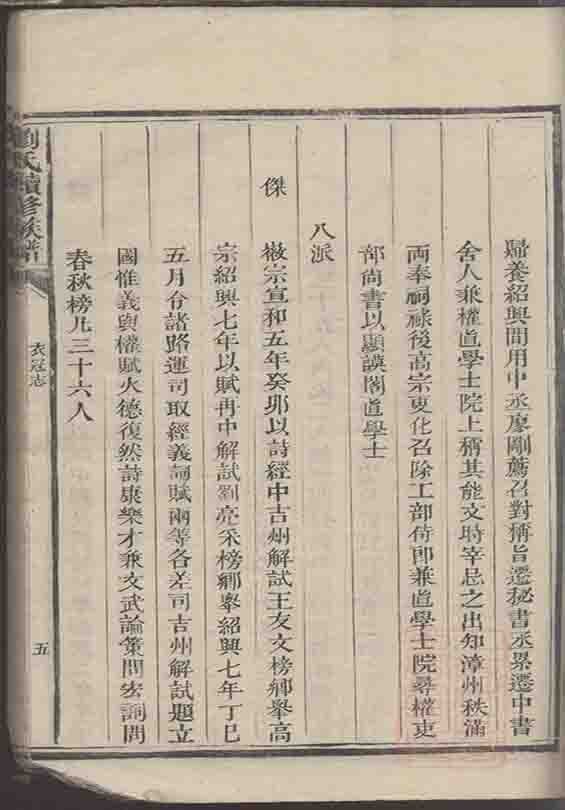 歸養紹興間用中丞廖剛薦召對稱旨遷秘書丞累遷中書
舍人兼權直學士院上稱其能文時宰忌之出知漳州秩滿
両奉祠祿後高宗更化召除工部侍郎兼直學士院尋權吏
部尚書以顯謨閣直學士
八派
傑 徽宗宣和五年癸卯以詩經中吉州解試王友文榜鄉舉高
宗紹興七年以賦再中解試劉亮采榜鄉舉紹興七年丁巳
五月令諸路運司取經義詞賦兩等各差司吉州解試題立
國惟義與權賦火德復然詩康樂才兼文武論策問宏詞問
春秋榜凡三十六人
劉氏續修族譜
衣冠志
五